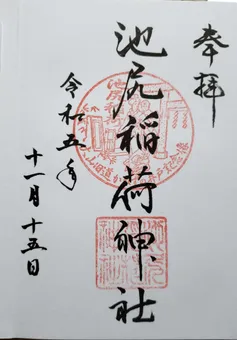 奉拝
池尻稲荷神社
令和五年
十一月十五日